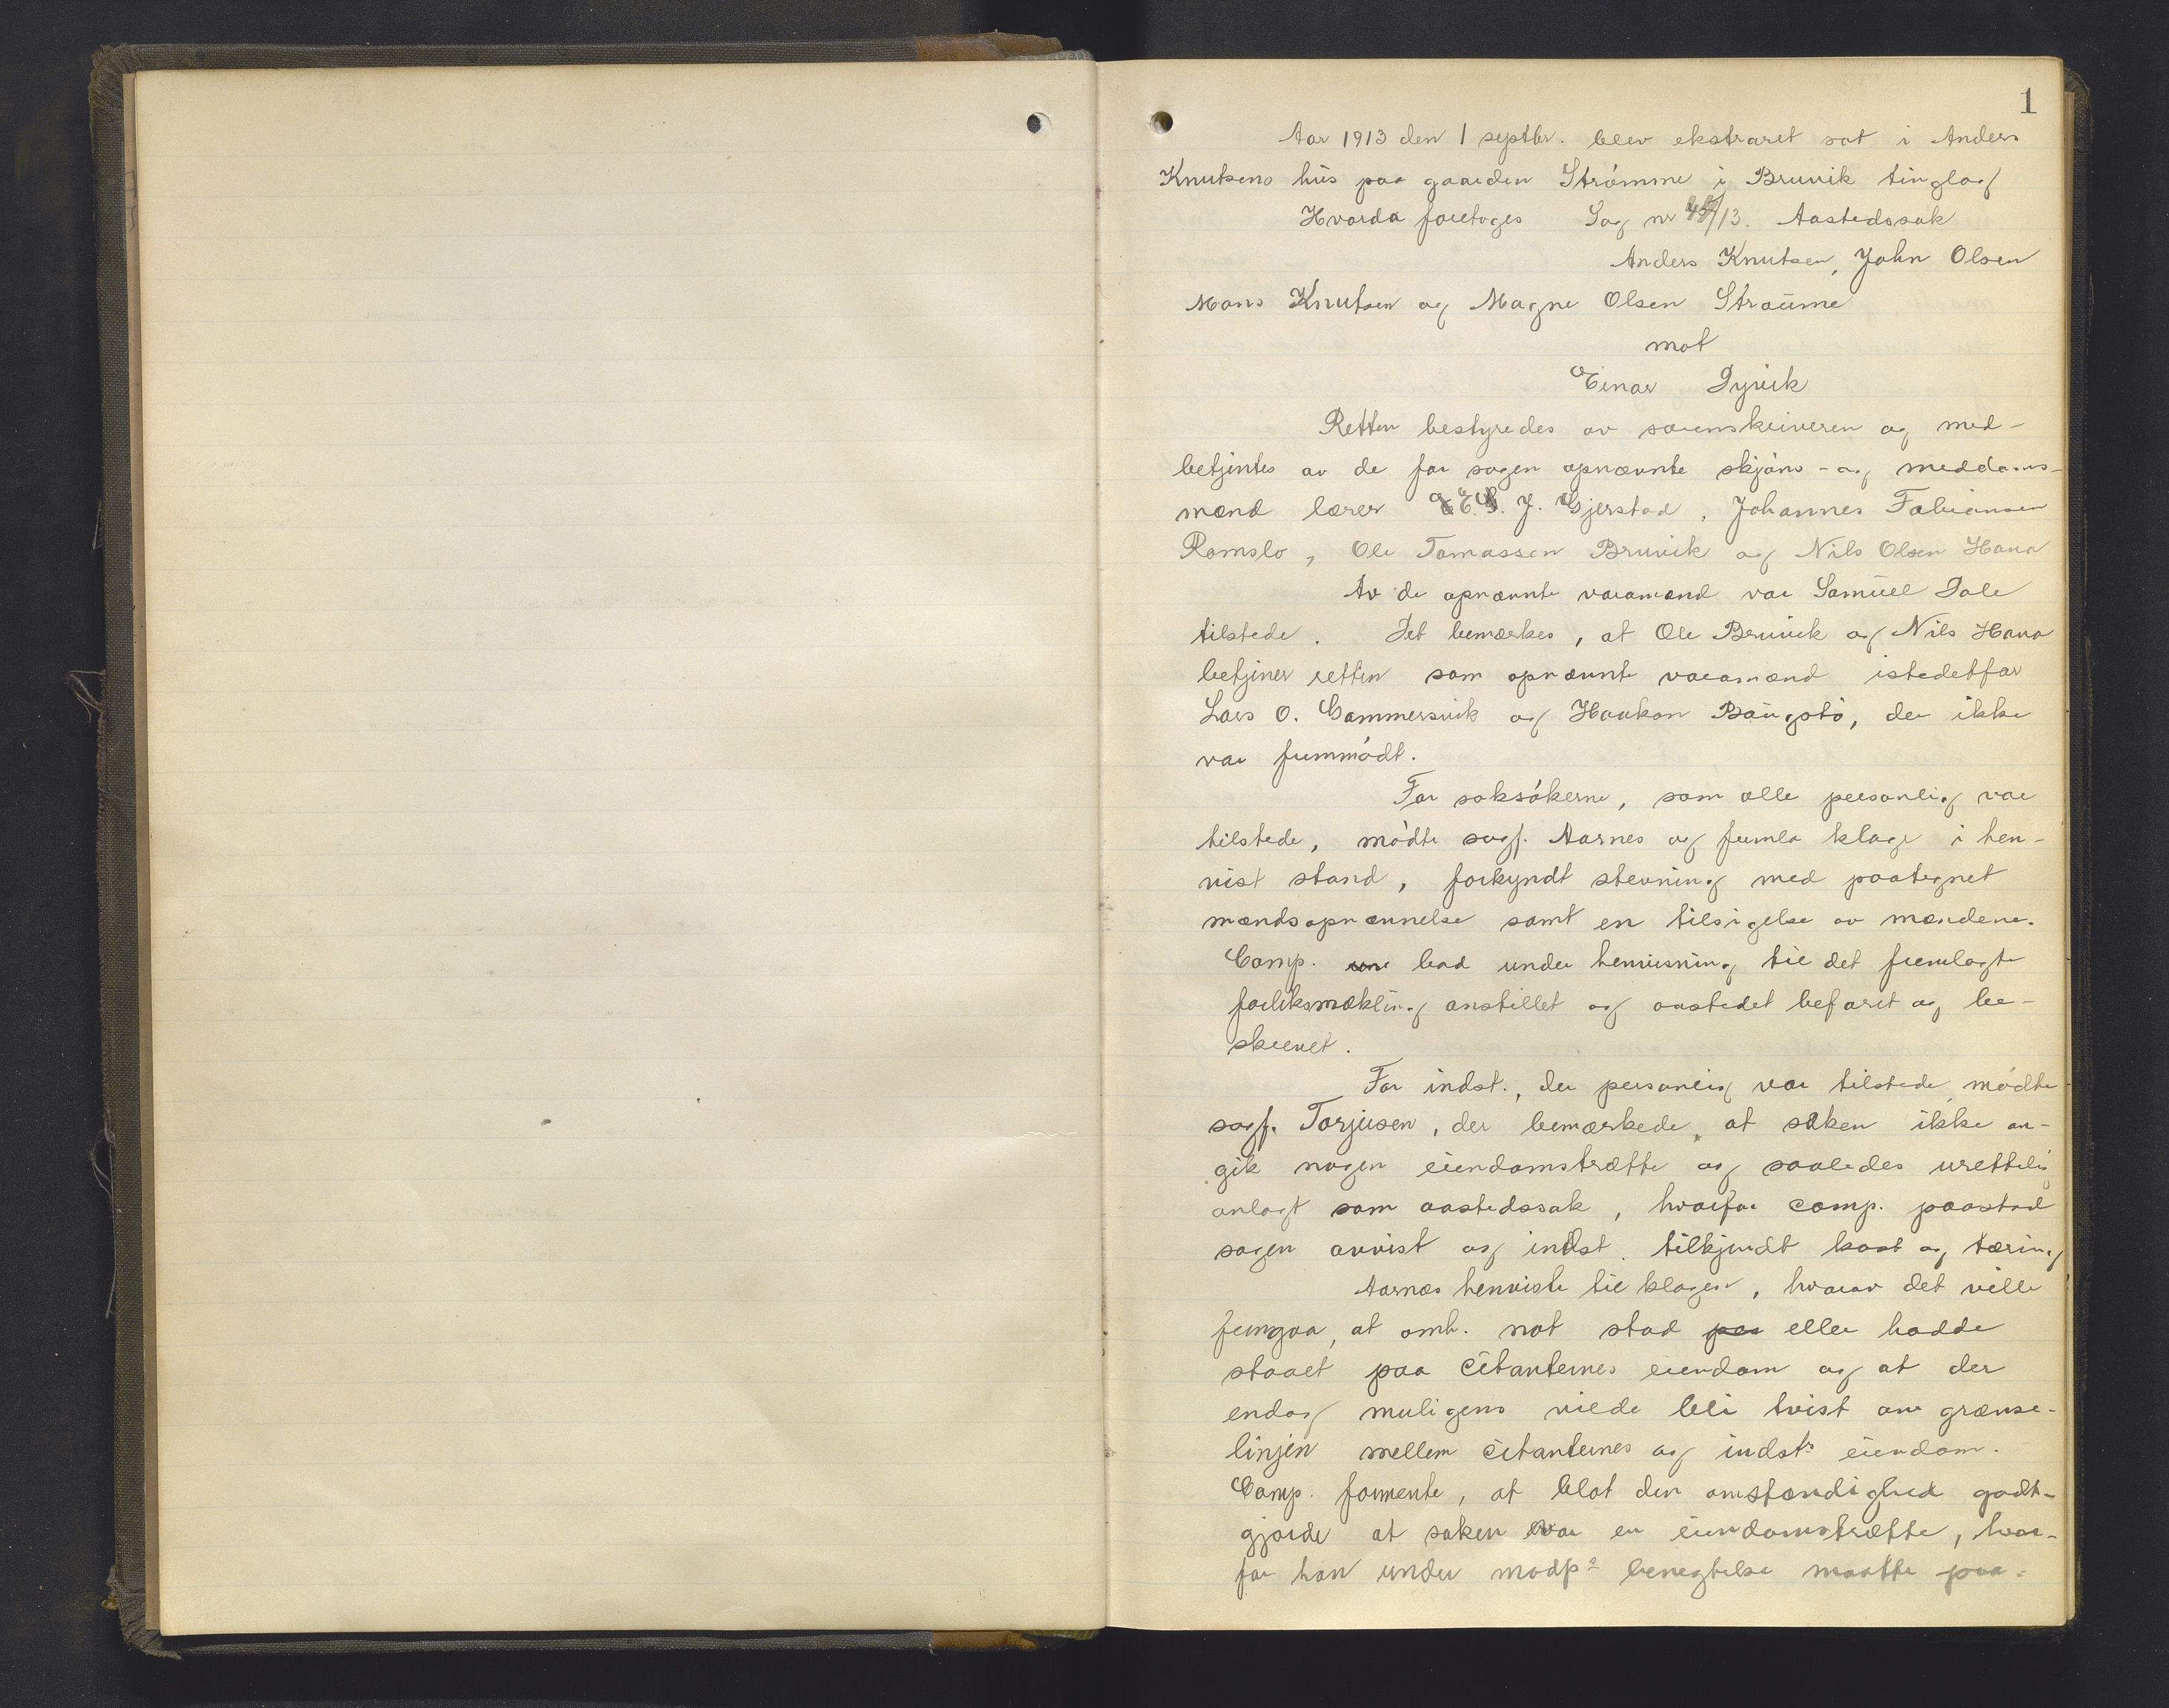 1
Aar 1913 den 1 septbr. blev ekstraret sat i Anders
Knutsens hus paa gaarden Strömme i Bruvik tinglag
Hvorda foretoges Sag nr /13. Aastedssak
Anders Knutsen, John Olsen
Mons Knutsen og Magne Olsen Straume
mot
Einar Dyvik
Retten bestyredes av sorenskriveren og med-
betjentes av de for sagen opnævnte skjöns- og meddoms-
mænd lærer J. Gjerstad, Johannes Fabiansen
Romslo, Ole Tomassen Bruvik og Nils Olsen Hana
Av de opnævnte varamænd var Samuel Dale
tilstede. Det bemærkes, at Ole Bruvik og Nils Hana
betjener retten som opnævnte varamænd istedetfor
Lars O. Gammersvik og Haakon Baugstö, der ikke
var fremmödt.
For saksökerne, som alle personlig var
tilstede, mödte sagf. Aarnes og fremla klage i hen-
vist stand, forkyndt stevning med paategnet
mændsopnævnelse samt en tilsigelse av mændene.
Comp. bad under henvisning til det fremlagte
forliksmækling anstillet og aastedet befaret og be-
skrevet.
For indst., der personlig var tilstede, mödte
sagf. Torjusen, der bemærkede, at saken ikke an-
gik nogen eiendomstrætte og saaledes urettelig
anlagt som aastedssak, hvorfor comp. paastod
sagen avvist og indst. tilkjendt kost og tæring
Aarnes henviste til klagen, hvorav det ville
fremgaa, at omh. not stod paa eller hadde
staaet paa citanternes eiendom og at der
endog muligens vilde bli tvist om grænse-
linjen mellem citanternes og indsts eiendom.
Comp. formente, at blot den omstændighed godt-
gjorde at saken var en eiendomstrætte, hvor-
for han under modps benegtelse maatte paa-